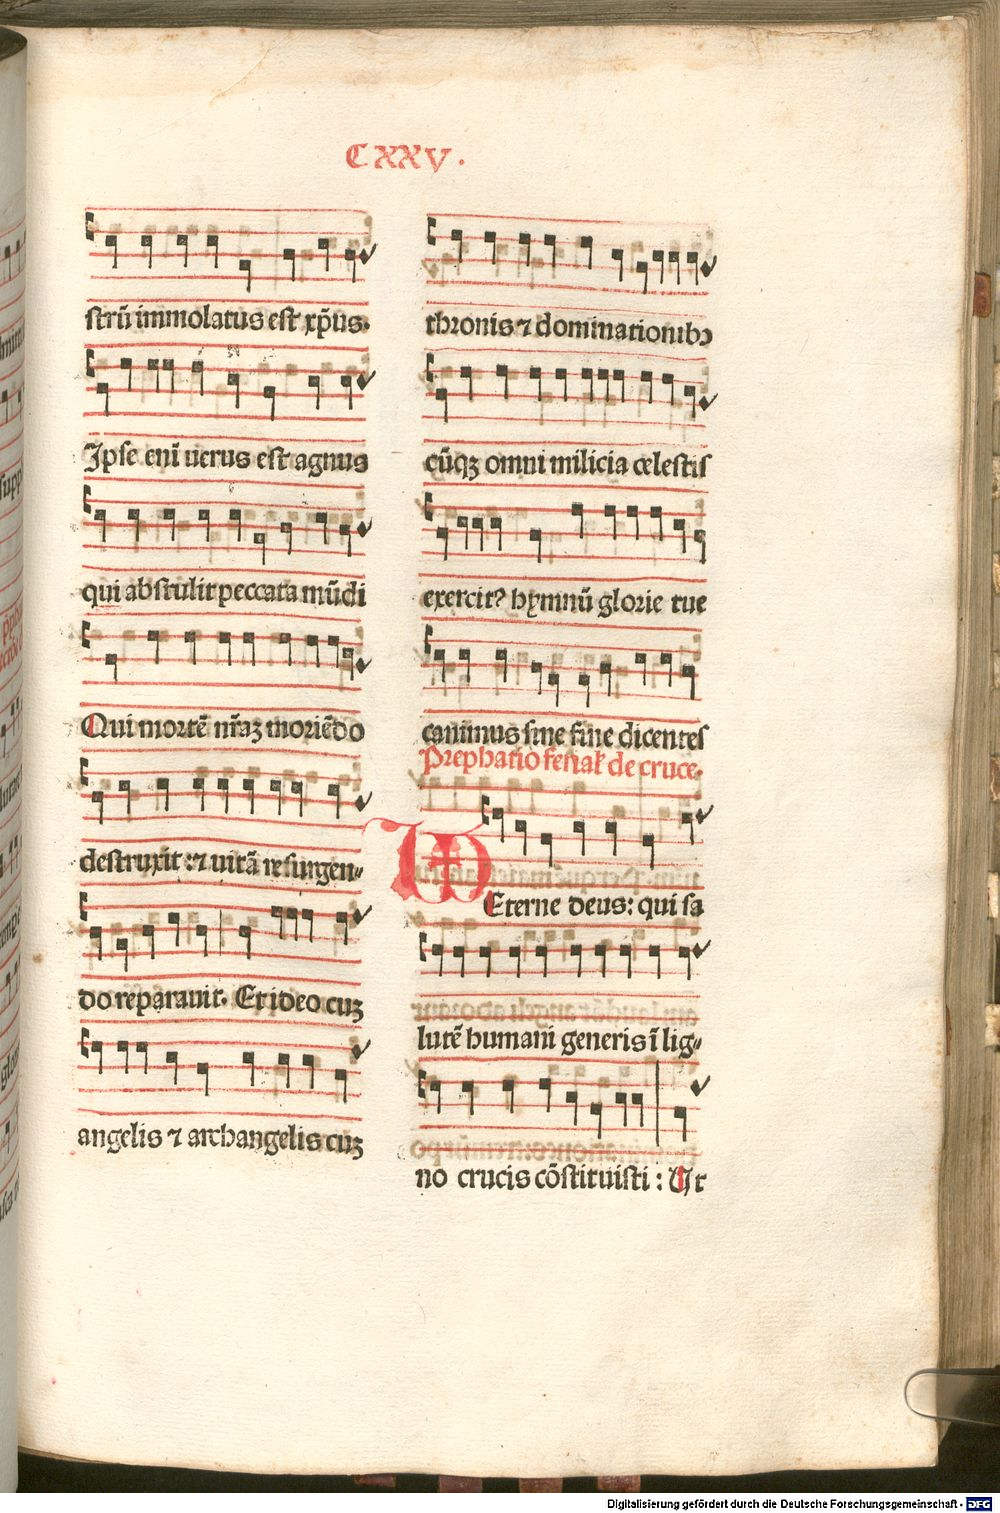 CXXV.
strū immolatus est xp̄us.
Ipse enī uerus est agnus
qui abstulit peccata mūdi
Qui mortē nr̄aꝫ moriēdo
destruxit: ⁊ uitā resurgen-
do reparauit. Et ideo cuꝫ
angelis ⁊ archangelis cuꝫ
thronis ⁊ dominationibꝰ
cūqꝫ omni milicia celestis
exercit? hymnū glorie tue
canimus sine fine dicentes
Prephatio ferial' de cruce.
Eterne deus: qui sa
lutē humani generis ī lig-
no crucis cōstituisti: Ut
Digitalisierung gefördert durch die Deutsche Forschungsgemeinschaft - DFG